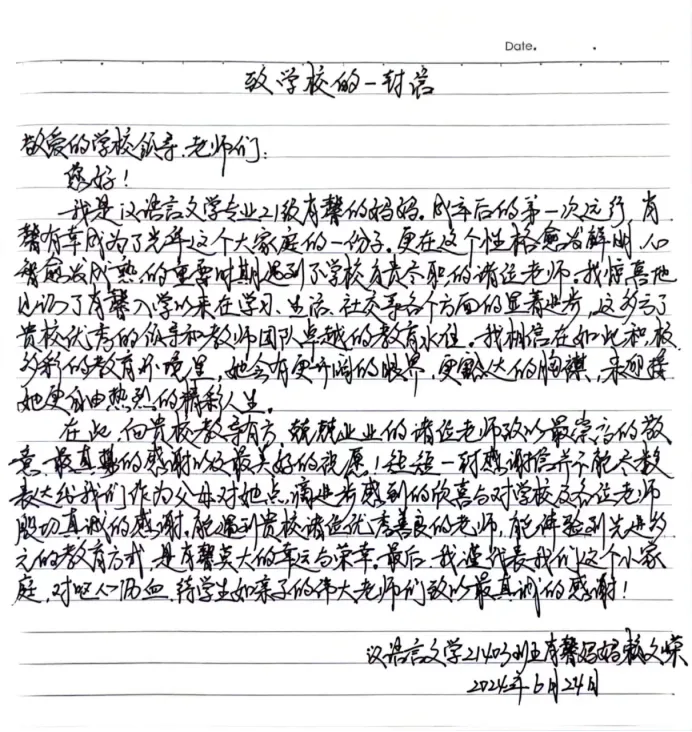 Date.
致学校的一封信
敬爱的学校领导、老师们:
您好!
我是汉语言文学专业21级肖馨的妈妈。成年后的第一次远行,肖
馨有幸成为了光华这个大家庭的一份子。更在这个性格愈发鲜明、心
智愈发成熟的重要时期遇到了学校负责尽职的诸位老师。我惊喜地
见证了肖馨入学以来在学习、生活、社交等各个方面的显著进步,这多亏了
贵校优秀的领导和教师团队卓越的教育水准。我相信在如此积极
多彩的教育环境里,她会有更开阔的眼界,更豁达的胸襟,来迎接
她更自由热烈的精彩人生。
在此,向贵校教导有方、兢兢业业的诸位老师致以最崇高的敬
意、最真挚的感谢以及最美好的祝愿!短短一封感谢信并不能尽数
表达给我们作为父母对她点滴进步感到的欣喜与对学校及各位老师
殷切真诚的感谢,能遇到贵校诸位优秀善良的老师,能体验到先进多
元的教育方式,是肖馨莫大的幸运与荣幸。最后,我谨代表我们这个小家
庭,对呕心沥血、待学生如亲子的伟大老师们致以最真诚的感谢!
汉语言文学21403班肖馨妈妈赖文荣
2024年6月24日